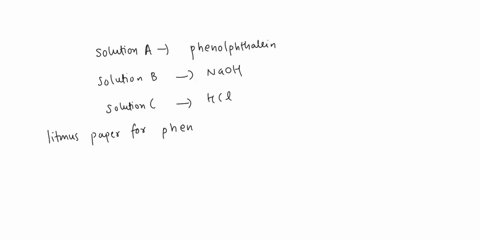 solution A → phenolphthalein
solution B → NaOH
solution C → HCl
litmus paper for phen